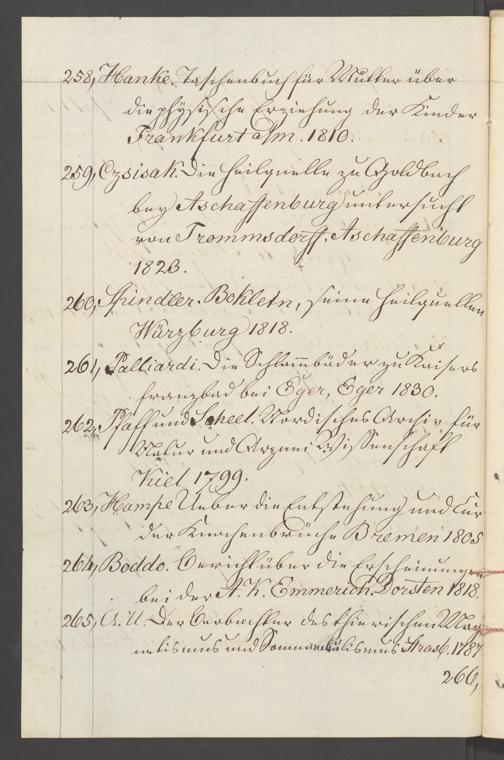 258, Hanke. Taschenbuch für Mütter über
die physische Erziehung der Kinder
Frankfurt a/m. 1810.
259, Czsisak. Die Heilquelle zu Goldbach
bey Aschaffenburg untersucht
von Trommsdorff, Aschaffenburg
1823.
260, Spindler. Bokletn, seine Heilquellen
Würzburg 1818.
261, Palliardi. Die Schlammbäder zu Kaisers
franzbad bei Eger, Eger 1830.
262, Pfaff und Scheel. Nordisches Archiv für
Natur und Arznei Wissenschaft
Kiel 1799.
263, Hampe Ueber die Entstehung und Cur
der Knochenbrüche Bremen 1805
264, Boddo. Bericht über die Erscheinungen
bei der A. K. Emmerich. Dorsten 1818.
265, A. U. Der Beobachter des thierischen Mag
netismus und Somnambulismus Strasb. 1787
266,